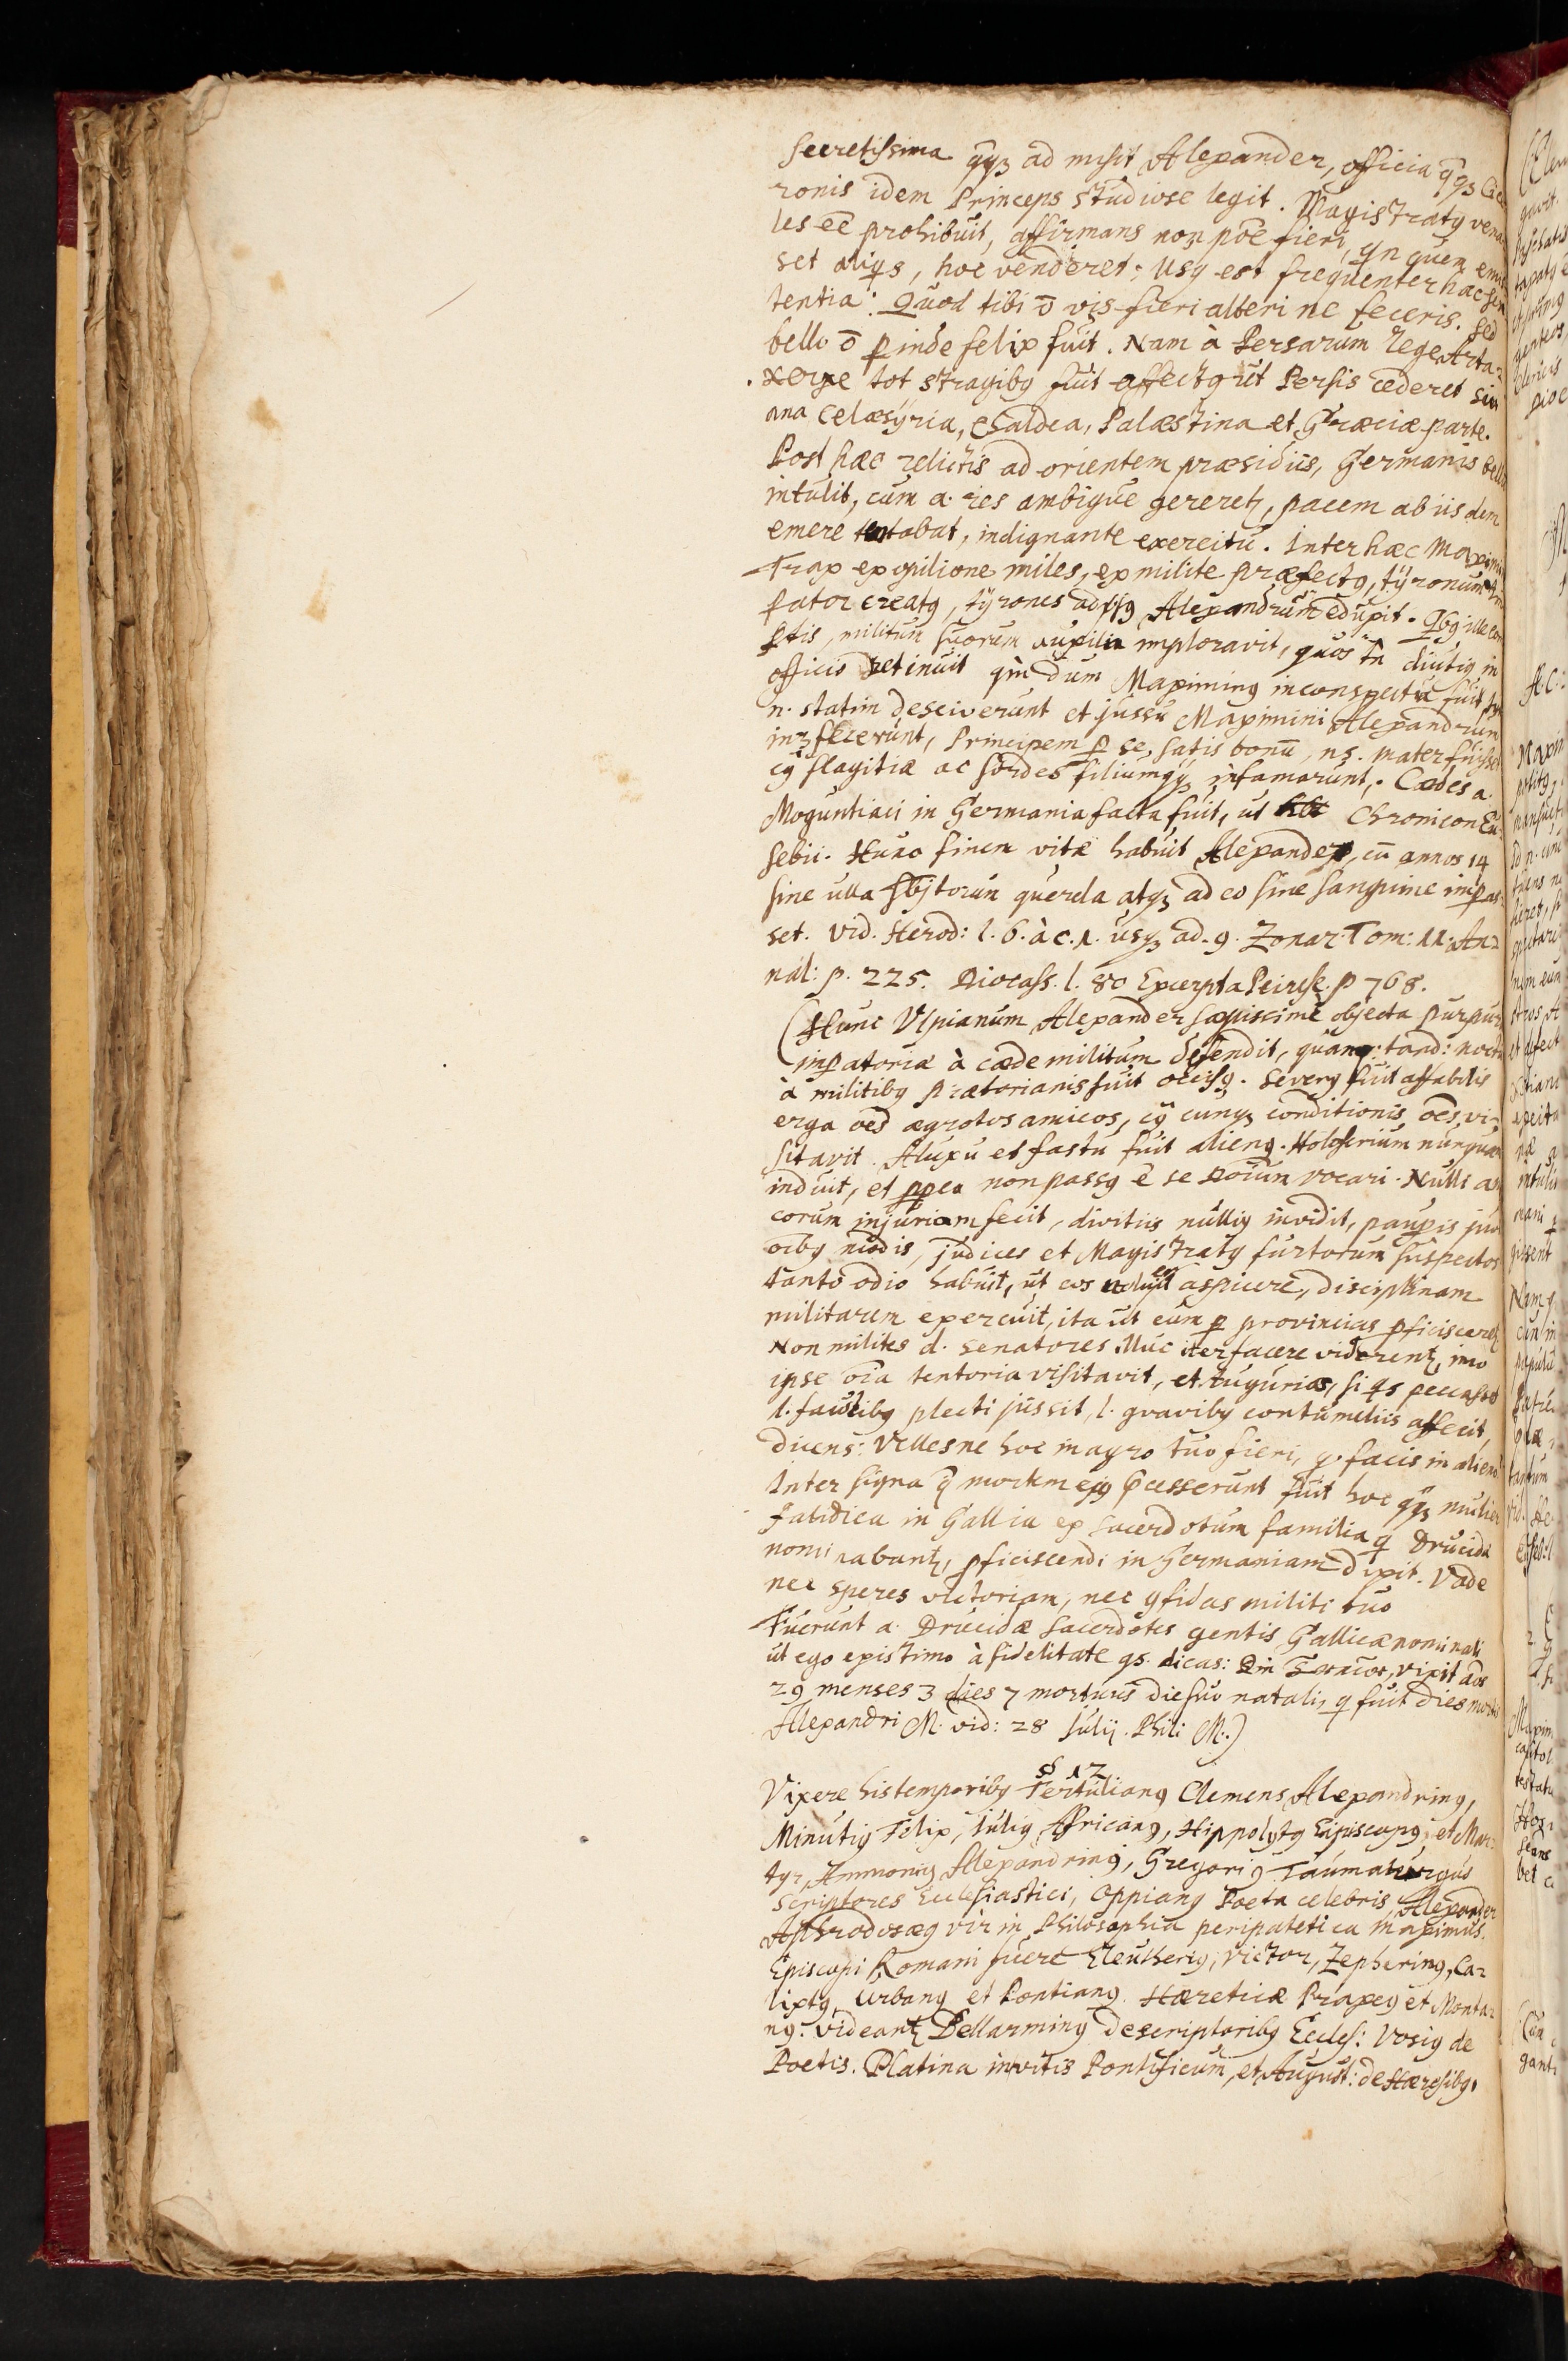 secretissima qq3 ad misit Alexander, officia qq3 Cice
ronis idem Princeps studiose legit. Magistratq vena
les ēē prohibuit, affirmans non pōe fieri, qn quem emis
set aliqs, hoc venderet: Usq est frequenter hac sen
tentia: Quod tibi ō vis fieri alteri ne feceris. Sed
bello ō pinde felix fuit. Nam à Persarum Rege Arta-
xerxe tot stragibq fuit affectq ut Persis cederet
ana Celæsÿria, Chaldea, Palæstina et Græciæ parte.
Post hæc relictis ad orientem præsidiis, Germanis bell
intulit, cum a. res ambigue gereretz, pacem ab iisdem
emere tentabat, indignante exercitu. Inter hæc Maximi
Trax ex opilione miles, ex milite præfectq, tÿronum
pator creatq, tÿrones adpsq Alexandrum eduxit. Qbq ille
ptis, militum suorum auxilia imploravit, quos tn diutiq in
officio retinuit qm dum Maximinq in conspectu fuit
n. statim desciverunt et jussu Maximini Alexandrum
in3fecerunt, Principem p se satis bonū, ns. mater fuisset
cq flagitia ac sordes filium qq3 infamarunt. Cædes a.
Moguntiaci in Germania facta fuit, ut Chronicon Eu-
sebii. Hunc finem vitæ habuit Alexander, cū annos 14
sine ulla sbjtorum querela atq3 ad eo sine sanguine impas-
set. vid. Herod: l. 6. à c. 1. usq3 ad. 9. Zonar. Tom: 11. An-
nal: p. 225. Diocass. l. 80 Excerpta Peiresk. p 768.
(Hunc Ulpianum Alexander sæpissime objecta purpur
impatoria à cæde militum defendit, quanq: tand: noctu
à militibq prætorianis fuit occisq. Severq fuit affabilis
erga oēs ægrotos amicos, cq cunq3 conditionis oēs, vi-
sitavit. A luxu et fastu fuit alienq. Holoserium nunquam
induit, et ppea non passq ē se Dōium vocari. Nulli am
corum injuriam fecit, divitiis nulliq invidit, paupis juv
oībq modis, judices et Magistratq furtorum suspectos
tanto odio habuit, ut eos aspicere, disciplinam
militarem exercuit, ita ut cum p provincias pficisceretz
Non milites d. Senatores illuc iter facere viderentz, imo
ipse oīa tentoria visitavit, et tuguria, si qs peccasset
l. faucibq plecti jussit, l. gravibq contumeliis affecit,
dicens: Vellesne hoc in agro tuo fieri, q. facis in alieno
Inter signa q mortem ejq pcesserunt fuit hoc qq3 mulier
fatidica in Gallia ex sacerdotum familia q Drucida
nominabantz, pficiscendi in Germaniam dixit. Vade
nec speres victoriam, nec qfidas militi tuo
Fuerunt a. Drucidæ sacerdotes gentis Gallicæ nominati
ut ego existimo à fidelitate qs. dicas: vixit aōs
29 menses 3 dies 7 mortuus die suo natali, q fuit dies mortis
Alexandri M. vid: 28 Julij. Phili M.)
§ 12
Vixere his temporibq Tertulianq Clemens Alexandrinq,
Minutiq Felix, Juliq Affricanq, Hippolytq Episcopq, et Mar-
tyr, Ammoniq Alexandrinq, Gregoriq Taumaturgus
Scriptores Ecclesiastici, Oppianq Poeta celebris Alexander
Aphrodosæq vir in Philosophia peripatetica maximus.
Episcopi Romani fuere Eleutheriq, Victor, Zepherinq, Ca-
lixtq, Urbanq et Pontianq. Hæreticæ Praxeq et Monta-
nq. videantz Bellarminq de scriptoribq Eccles: Vosiq de
Poetis. Platina in vitis Pontificum, et August: de Hæresibq.